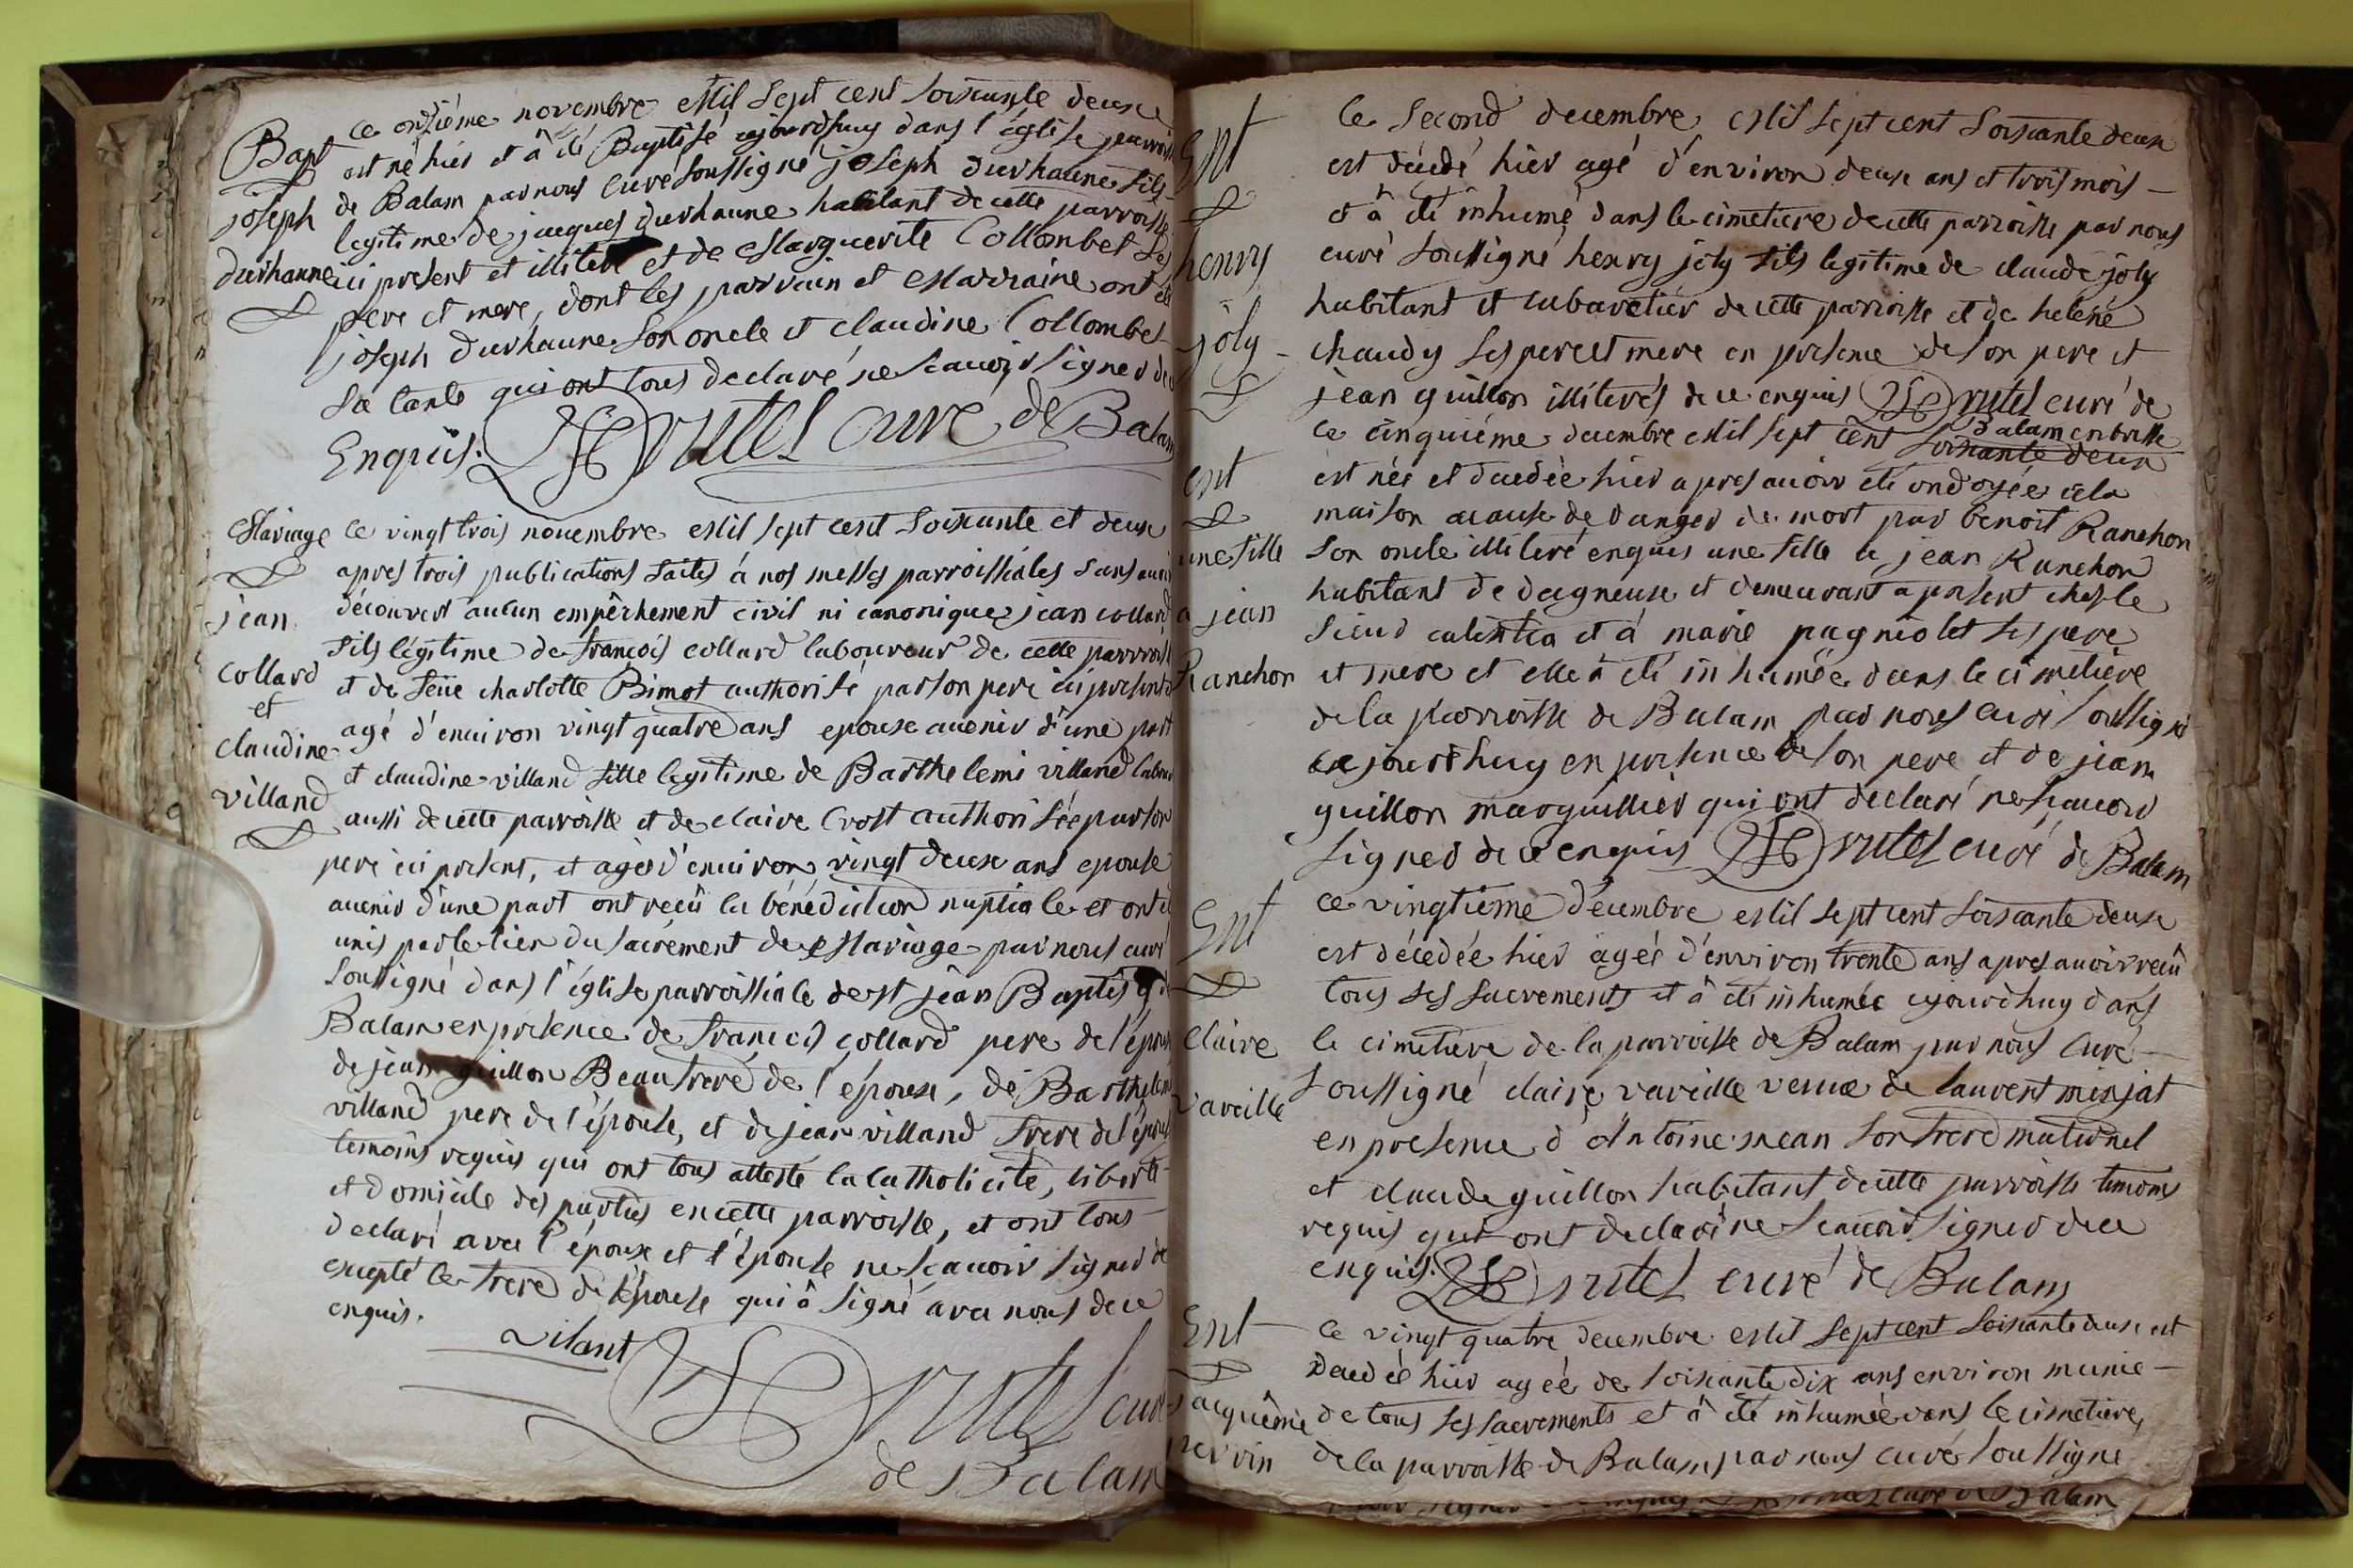 Bapt
joseph
durhanne
ce onzième novembre Mil Sept cent Soixante deux
est né hier et â été Baptisé ajourdhuy dans l'église parroiss
de Balam par nous Curé Soussigné joseph durhanne fils
legitime de jacques durhanne habitant de cette parroisse
ici present et illiteré et de Marguerite Collombet Ses
pere et mere, dont les parrain et Marraine ont été
joseph durhanne Son oncle et claudine Collombet
Sa tante qui ont tous declaré ne Scauoir Signer de
Enquis. Drutel Curé de Balam
Mariage
jean
collard
et
claudine
villand
Ce vingt trois nouembre Mil Sept cent Soixante et deux
apres trois publications faites á nos messes parroissiales Sans auoir
découvert aucun empêchement civil ni canonique jean collard
fils légitime de françois collard laboureur de cette parroisse
et de feüe charlotte Bimot authorisé par Son pere ici present
agé d'enuiron vingt quatre ans epoux auenir d'une part
et claudine villand fille legitime de Barthelemi villand labour
aussi de cette parroisse et de claire Crost authorisée par Son
pere ici present, et agée d'enuiron vingt deux ans epouse
auenir d'une part ont reçû la bénédiction nuptiale et ont é
unis par le lien du Sacrement de Mariage par nous curé
Soussigné dans l'église parroissiale de st jean Baptiste d
Balam en presence de francois collard pere de l'époux
de jean guillon Beaufrere de l'époux, de Barthelem
villand pere de l'épouse, et de jean villand frere de l'épouse
temoins requis qui ont tous attesté la catholicité, liberté
et domicile des parties en cette parroisse, et ont tous
declaré avec l'époux et l'épouse ne Scauoir Signer de
excepté le frere de l'épouse qui â Signé avec nous de ce
enquis.
vilant
Drutel curé
de Balam
Ent
henry
joly
Ce Second decembre Mil Sept cent Soixante deux
est décédé hier agé d'environ deux ans et trois mois
et â été inhumé dans le cimetiere de cette parroisse par nous
curé Soussigné henry joly fils legitime de claude joly
habitant et cabaretier de cette parroisse et de helene
chaudy Ses pere et mere en presence de Son pere et
jean guillon illiterés de ce enquis Drutel curé de
Balam en bresse
ent
une fille
a jean
Ranchon
Ce cinquiéme decembre Mil Sept cent Soixante deux
est née et decedée hier apres auoir été ondoyée à la
maison acause de danger de mort par benoit Ranchon
Son oncle illiteré enquis une fille a jean Ranchon
habitant de dagneux et demeurant a present chez le
Sieur et á marie pagniolet Ses pere
et mere et elle â été inhumée dans le cimetière
de la parroisse de Balam par nous curé Soussigné
ce jourdhuy en presence de Son pere et de jean
guillon marguillier qui ont declaré ne Scauoir
Signer de ce enquis Drutel curé de Balam
Ent
Claire
vareille
ce vingtiéme décembre Mil Sept cent Soixante deux
est décedée hier agée d'environ trente ans apres auoir reçû
tous Ses Sacrements et â été inhumée ajourdhuy dans
le cimetiere de la parroisse de Balam par nous Curé
Soussigné claire vareille veuve de laurent minjat
en presence d'Antoine mean Son frere maternel
et claude guillon habitant de cette parroisse temoins
requis qui ont declaré ne Scauoir Signer de ce
enquis. Drutel curé de Balam
Ent
jacquême
perrin
Ce vingt quatre decembre Mil Sept cent Soixante deux est
Decedée hier agée de Soixante dix ans environ munie
de tous Ses Sacrements et â été inhumée dans le cimetiere
de la parroisse de Balam par nous curé Soussigné
curé de Balam